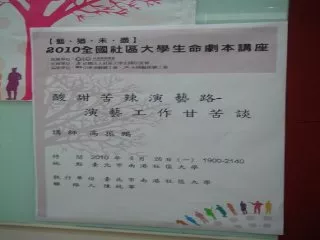 【藝‧猶‧未‧盡】
2010全國社區大學生命劇本講座
酸甜苦辣演藝路-
演藝工作甘苦談
講師 高振鵬
時間 2010年4月26日(一) 1900-2140
地點 臺北市南港社區大學
執行單位 臺北市南港社區大學
聯絡人 陳